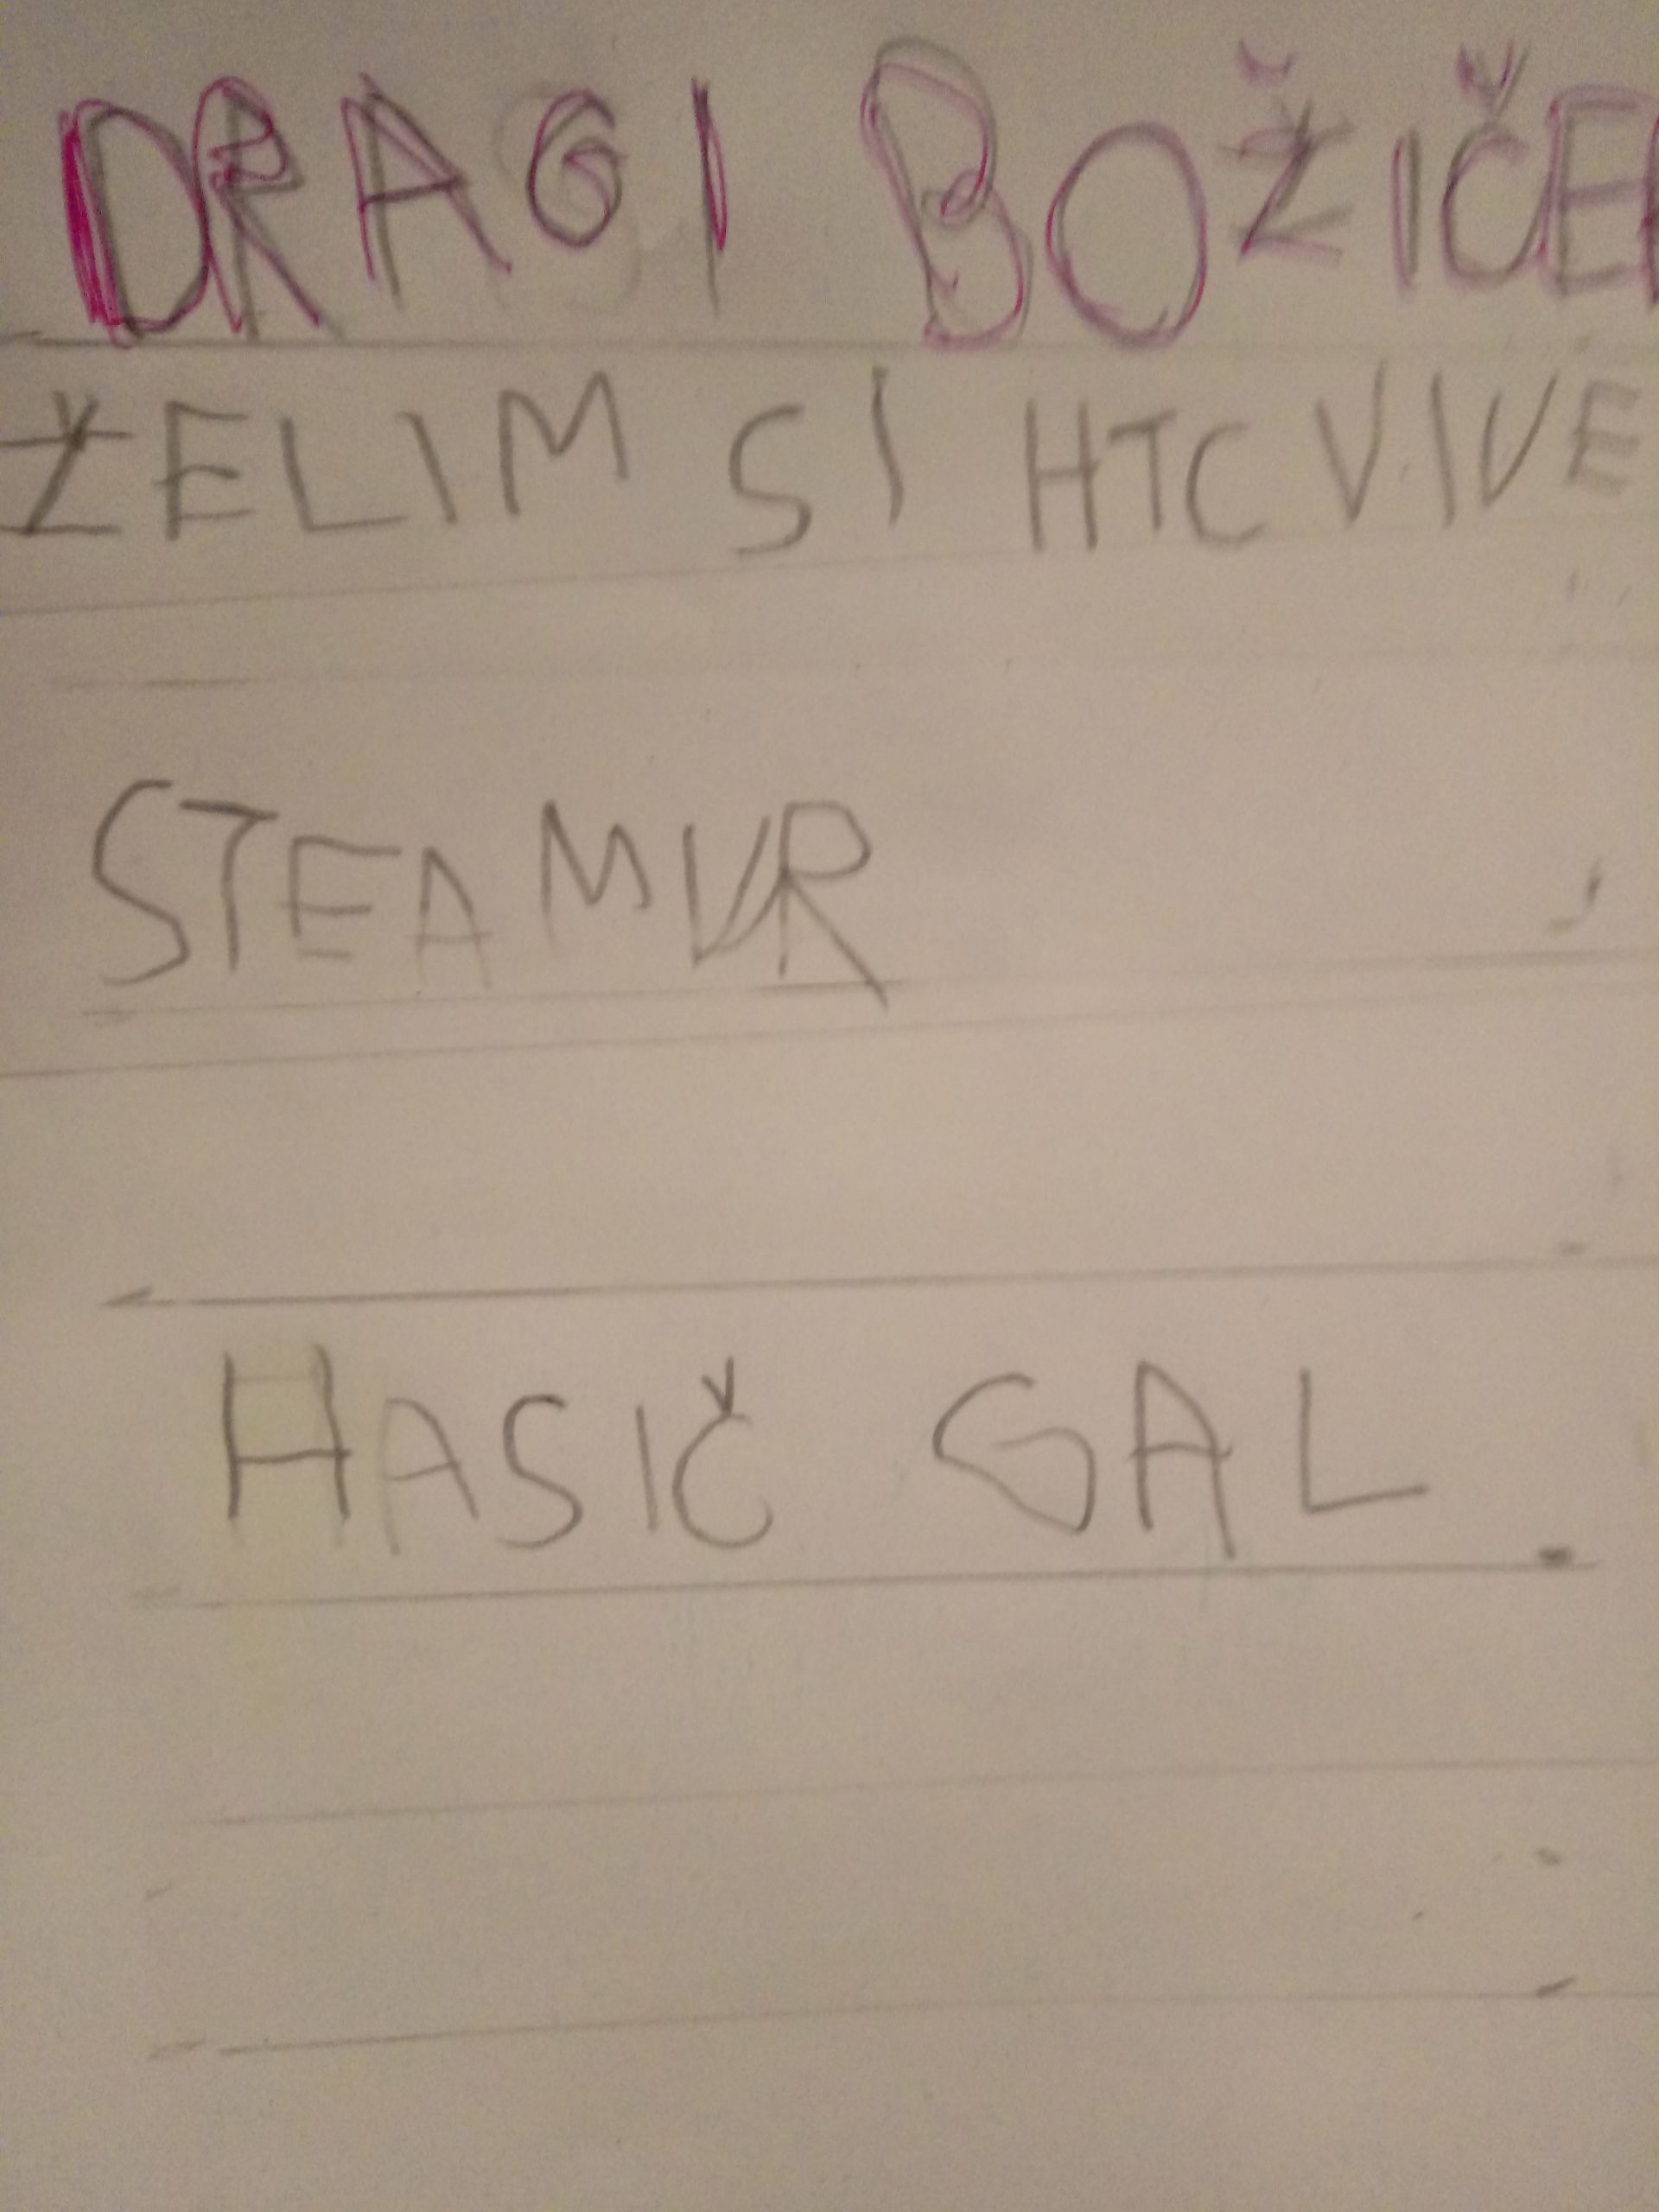 DRAGI BOŽIČE
ŽELIM SI HTC VIVE
STEAMVR
HASIČ GAL.